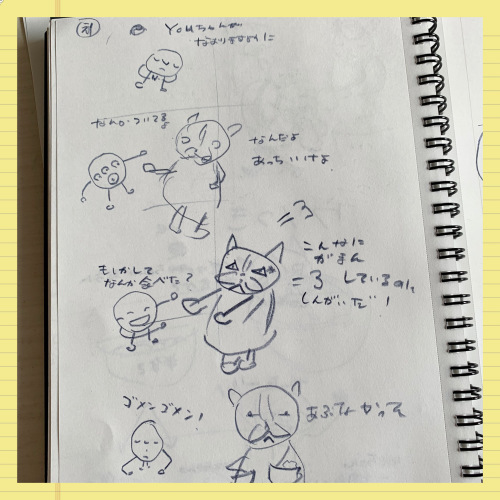 Youちゃんが
なおりますように
なんか、ついてるよ
なんだよ
あっちいけよ
=3
もしかして
なんか食べた?
こんなに
がまん
=3 しているのに
しんがいだ!
ゴメンゴメン!